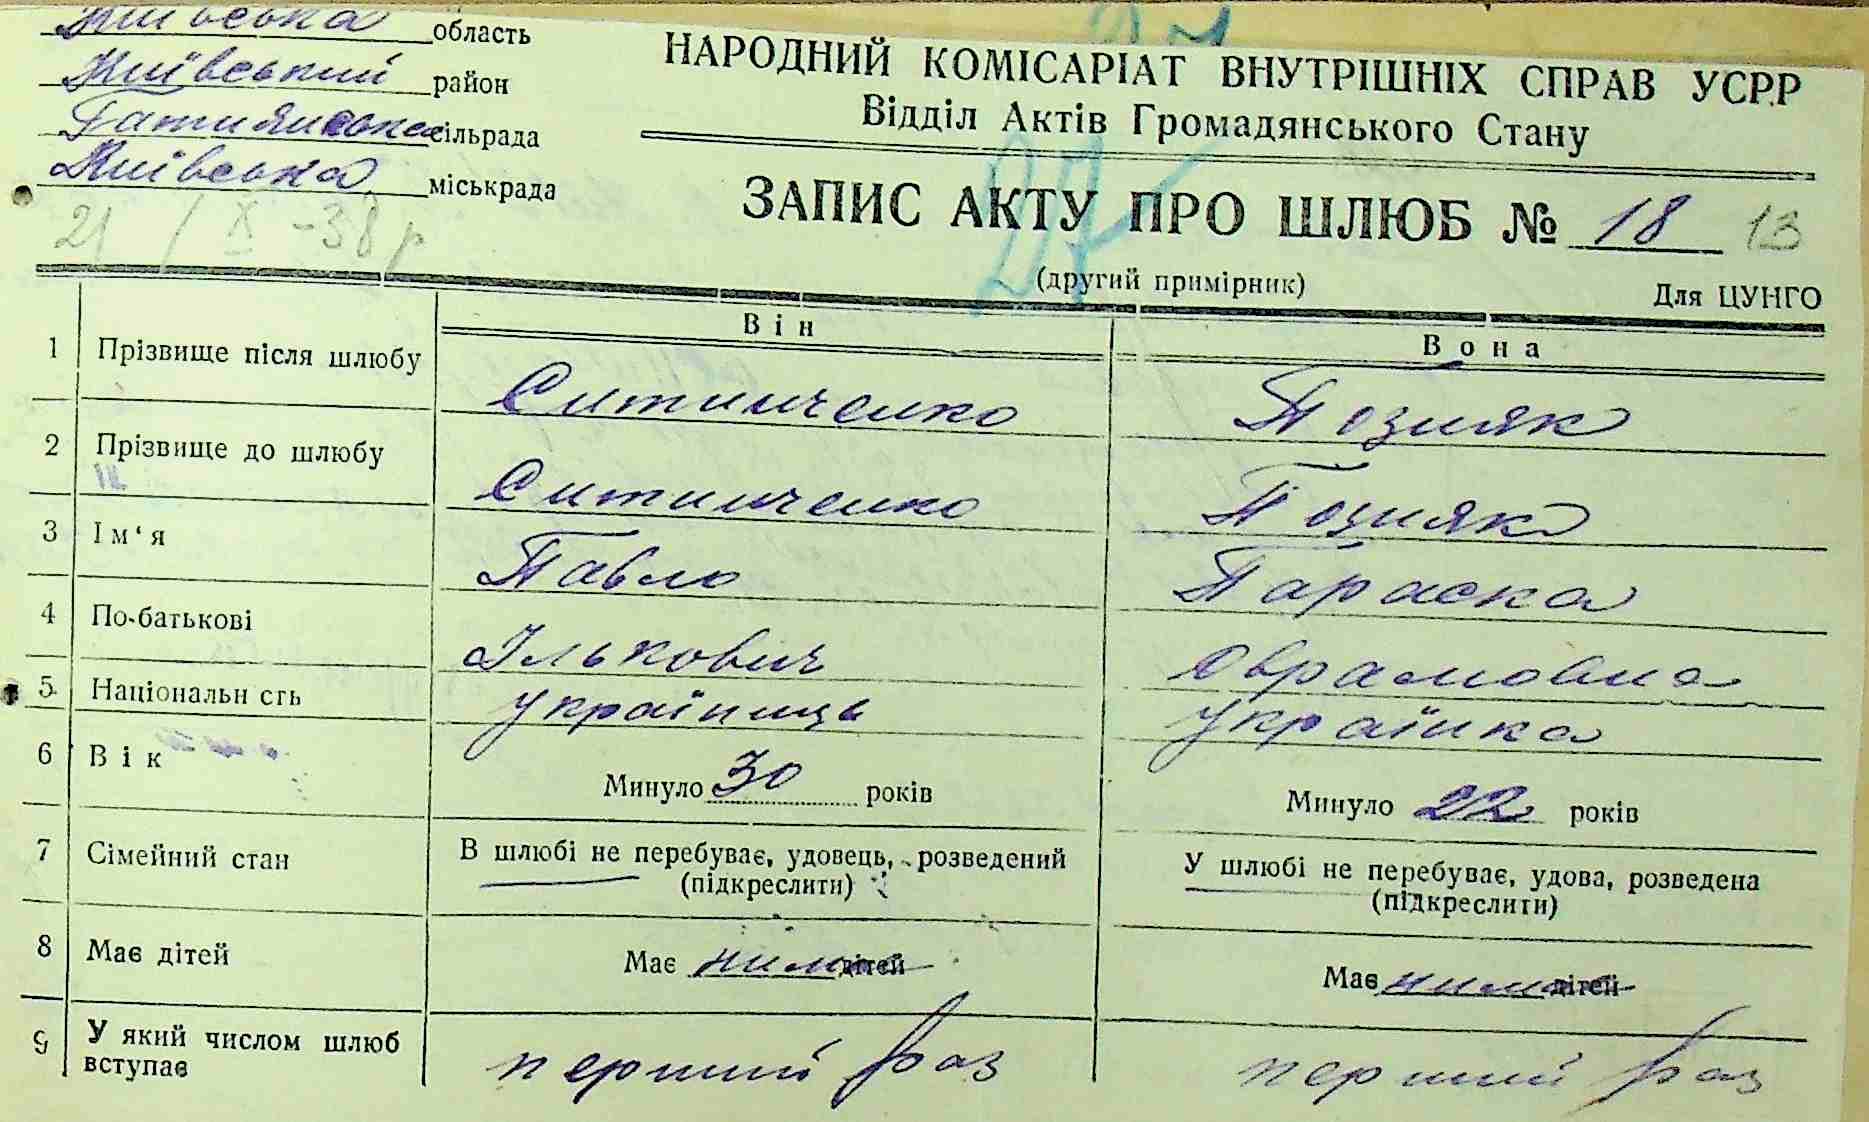 Київська область
Київський район
Гатиянська сільрада
Київська міськрада
21 / X -38 р
НАРОДНИЙ КОМІСАРІАТ ВНУТРІШНІХ СПРАВ УСРР
Відділ Актів Громадянського Стану
27
ЗАПИС АКТУ ПРО ШЛЮБ № 18 13
(другий примірник)
Для ЦУНГО
Він Вона
1 Прізвище після шлюбу Ситниченко Позняк
2 Прізвище до шлюбу Ситниченко Позняк
3 Ім‘я Павло Параска
4 По-батькові Ількович Оврамовна
5 Національн сть українець українка
6 Вік Минуло 30 років Минуло 22 років
7 Сімейний стан В шлюбі не перебуває, удовець, розведений У шлюбі не перебуває, удова, розведена
(підкреслити) (підкреслити)
8 Має дітей Має нима дітей Має нима дітей
9 У який числом шлюб вступає перший раз перший раз